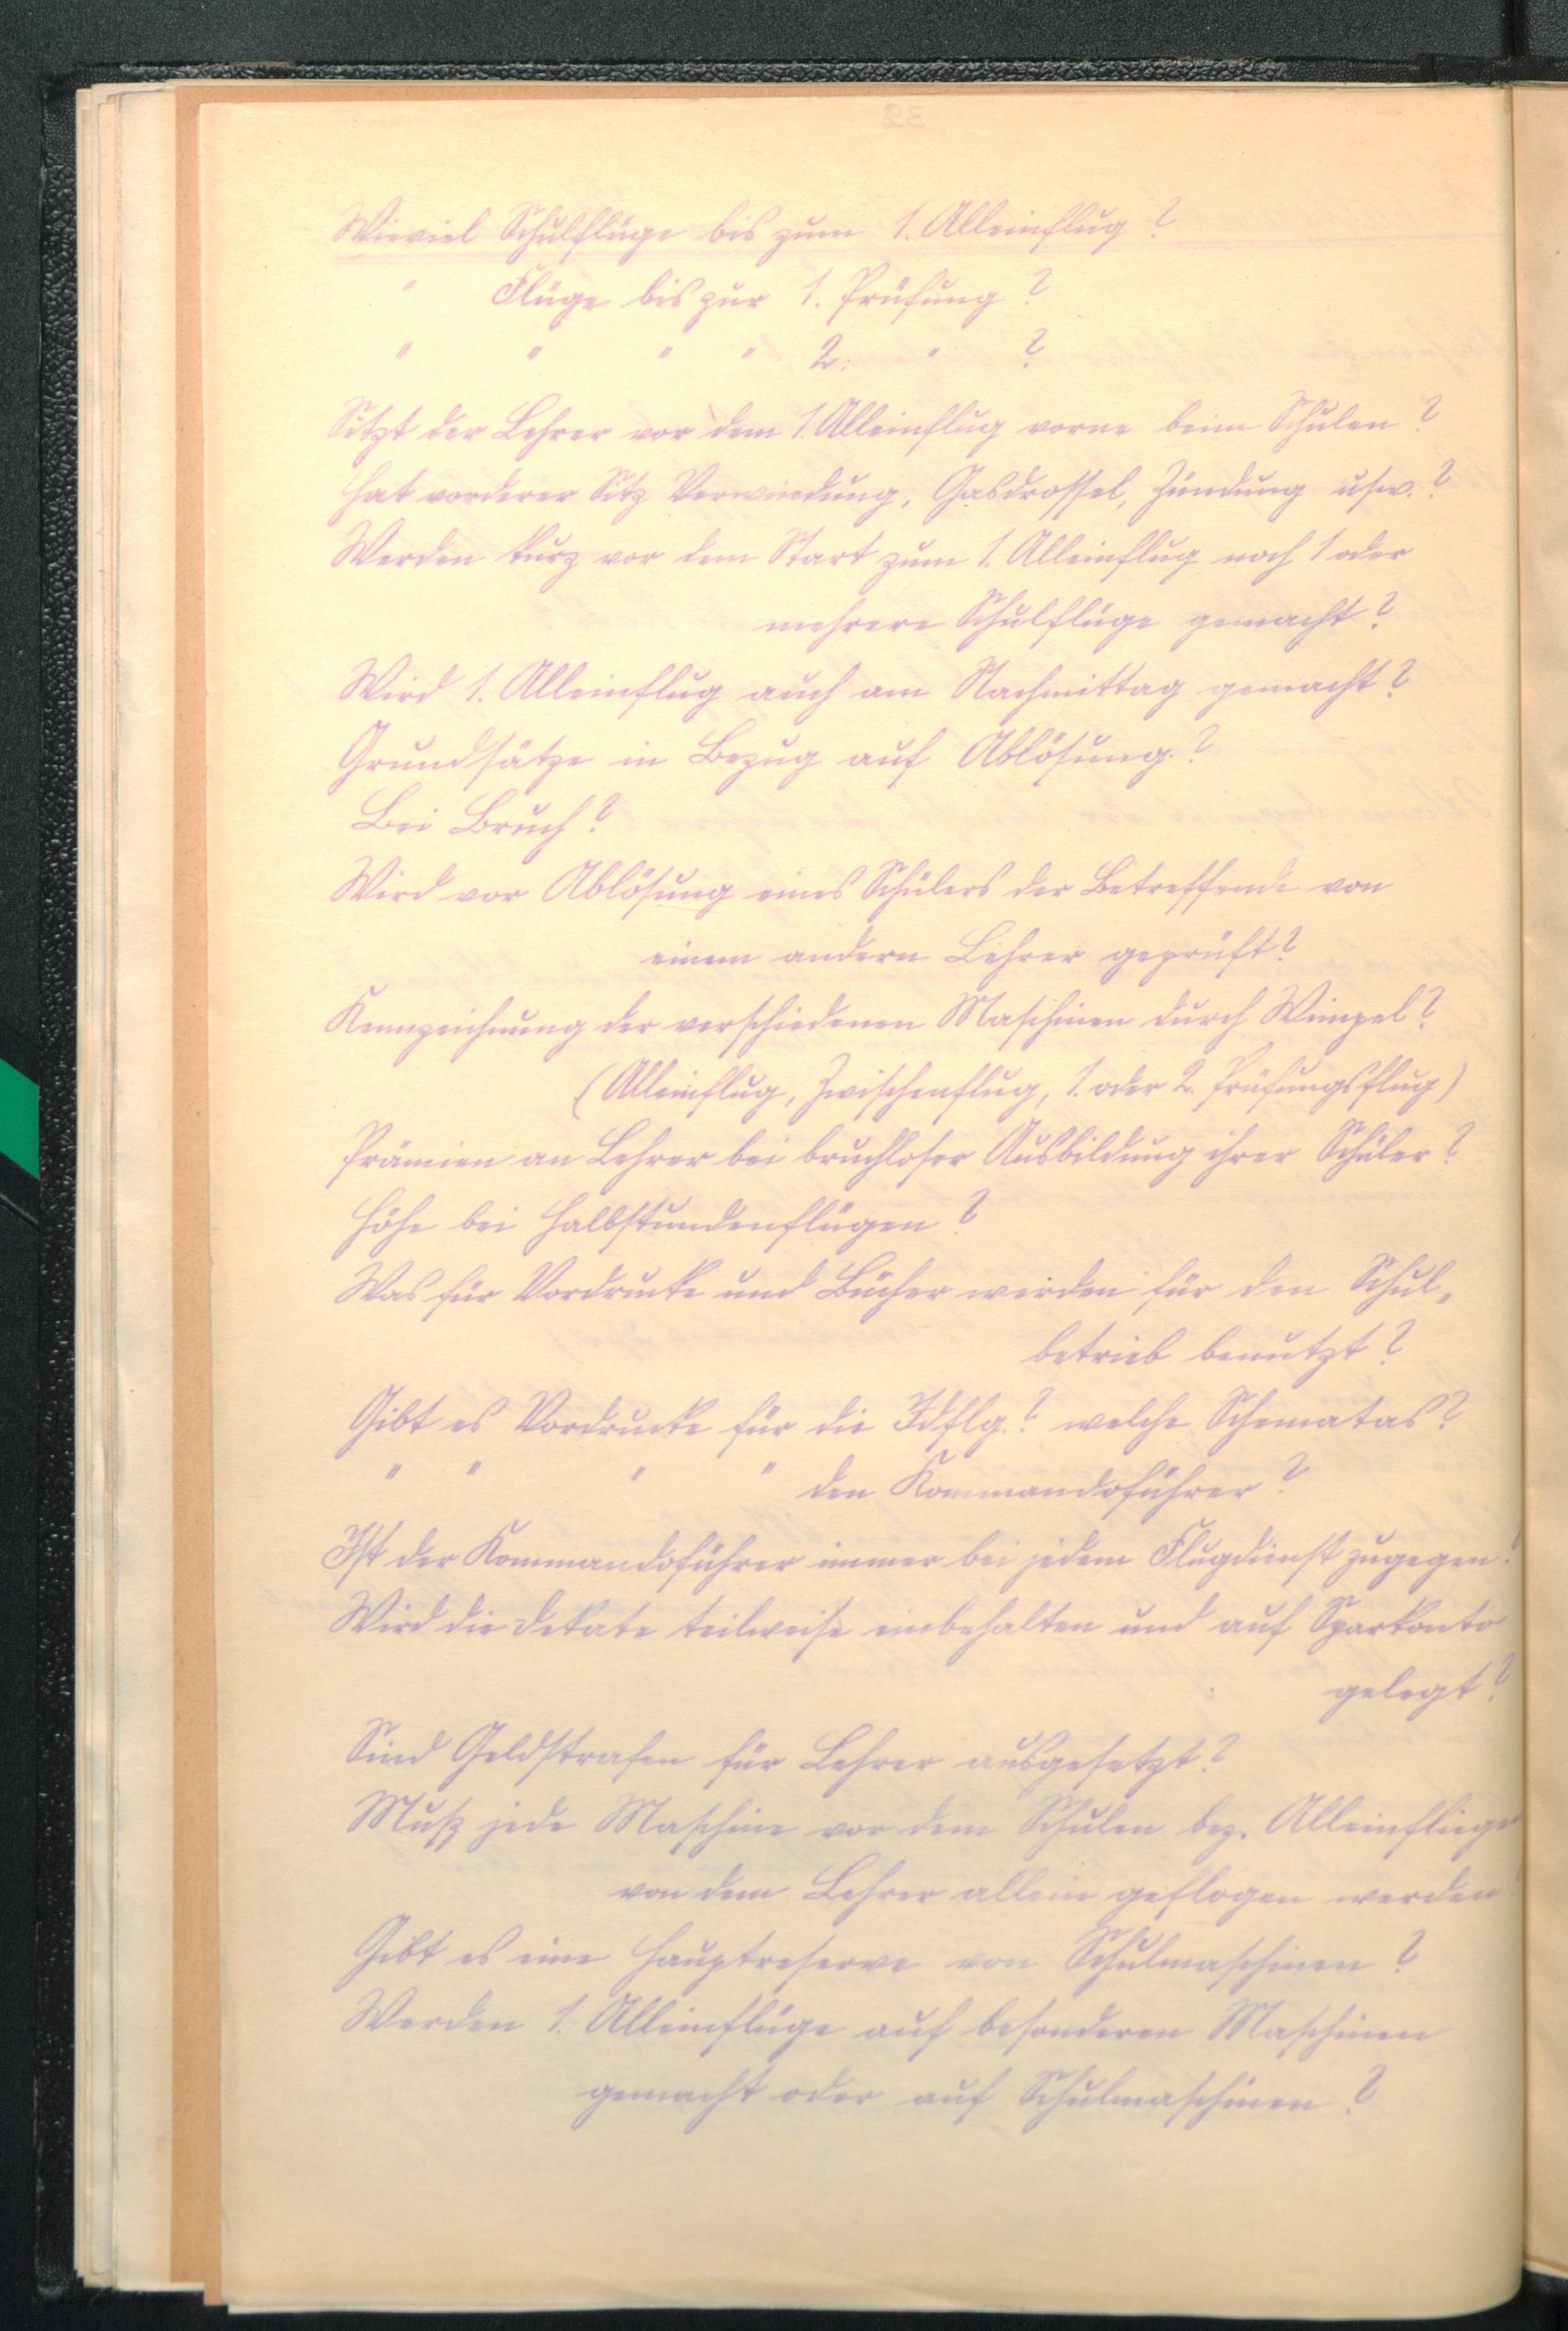 Wieviel Schulflüge bis zum 1. Alleinflug?
" Flüge bis zur 1. Prüfung?
" " " " 2. " ?
Sitzt der Lehrer vor dem 1. Alleinflug vorne beim Schulen?
Hat vorderer Sitz Verwindung, Gasdrossel, Zündung usw.?
Werden kurz vor dem Start zum 1. Alleinflug noch 1 oder
mehrere Schulflüge gemacht?
Wird 1. Alleinflug auch am Nachmittag gemacht?
Grundsätze in Bezug auf Ablösung?
Bei Bruch?
Wird vor Ablösung eines Schülers der Betreffende von
einem andern Lehrer geprüft?
Kennzeichnung der verschiedenen Maschinen durch Wimpel?
(Alleinflug, Zwischenflug, 1. oder 2. Prüfungsflug)
Prämien an Lehrer bei bruchloser Ausbildung ihrer Schüler?
Höhe bei Halbstundenflügen?
Was für Vordrucke und Bücher werden für den Schul-
betrieb benutzt?
Gibt es Vordrucke für die Idflg.? welche Schematas?
" " " " den Kommandoführer?
Ist der Kommandoführer immer bei jedem Flugdienst zugegen?
Wird die Dekate teilweise einbehalten und auf Sparkonto
gelegt?
Sind Geldstrafen für Lehrer ausgesetzt?
Muß jede Maschine vor dem Schulen bez. Alleinfliegen
von dem Lehrer allein geflogen werden?
Gibt es eine Hauptreserve von Schulmaschinen?
Werden 1. Alleinflüge auf besonderen Maschinen
gemacht oder auf Schulmaschinen?